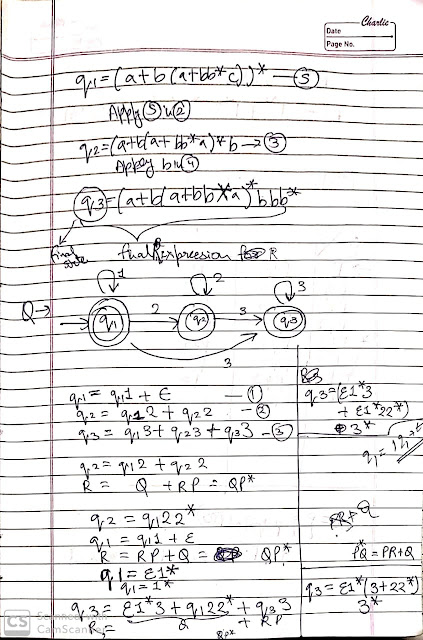 Charlie
Date
Page No.
q1 = (a+b (a+bb*c))* — (5)
Apply (5) in (2)
q2 = (a+b(a+bb*a)*b → (3)
Apply b in (4)
q3 = (a+b(a+bb*a)*bbb*
final state
final expression for R
1
2
3
Q →
q1
2
q2
3
q3
3
q1 = q11 + ε — (1)
q2 = q12 + q22 — (2)
q3 = q13 + q23 + q33 — (3)
q2 = q12 + q22
R = Q + RP = QP*
q2 = q122*
q1 = q11 + ε
R = RP + Q = QP*
q1 = ε1*
q1 = 1*
q3 = ε1*3 + q122* + q33
R = Q + RP
QP*
q3 = (ε1*3
+ ε1*22*)
3*
PQ* = PR+Q
q3 = ε1*(3+22*)
3*
CS
CamScanner